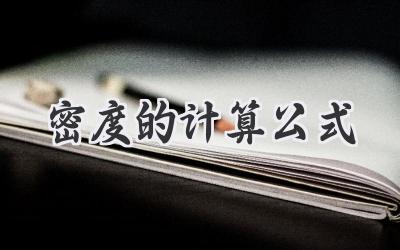 密度的计算公式